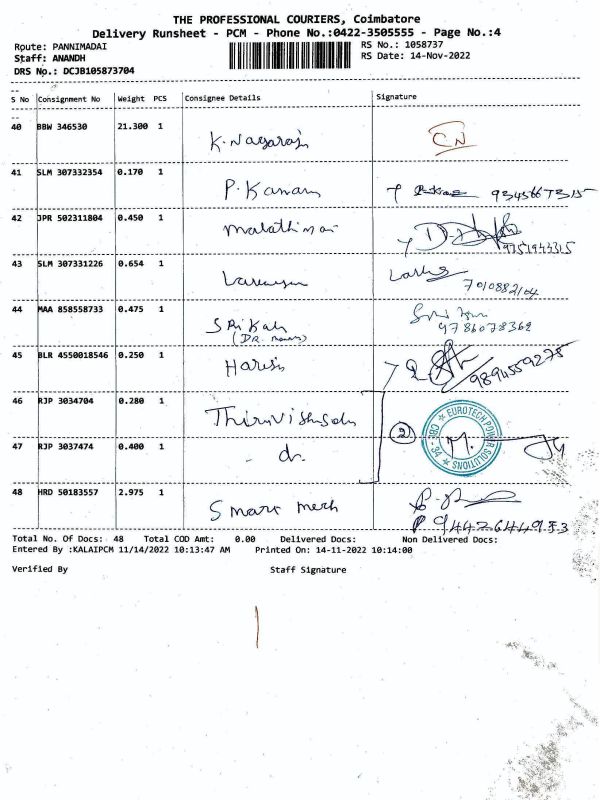 THE PROFESSIONAL COURIERS, Coimbatore
Delivery Runsheet - PCM - Phone No.:0422-3505555 - Page No.:4
Route: PANNIMADAI
RS No.: 1058737
Staff: ANANDH
RS Date: 14-Nov-2022
DRS No.: DCJB105873704
S No Consignment No Weight PCS Consignee Details Signature
40 BBW 346530 21.300 1 K. Nagaraj CN
41 SLM 307332354 0.170 1 P. Kanan
42 JPR 502311804 0.450 1 9751943315
43 SLM 307331226 0.654 1
7010882104
44 MAA 858558733 0.475 1 Srikah
9786078362
45 BLR 4550018546 0.250 1 Harish 9894559275
46 RJP 3034704 0.280 1
47 RJP 3037474 0.400 1 - do. 2 EUROTECH POWER SOLUTIONS CBE - 34
48 HRD 50183557 2.975 1 Smart mech
Total No. Of Docs: 48 Total COD Amt: 0.00 Delivered Docs: Non Delivered Docs:
Entered By :KALAIPCM 11/14/2022 10:13:47 AM Printed On: 14-11-2022 10:14:00
Verified By Staff Signature